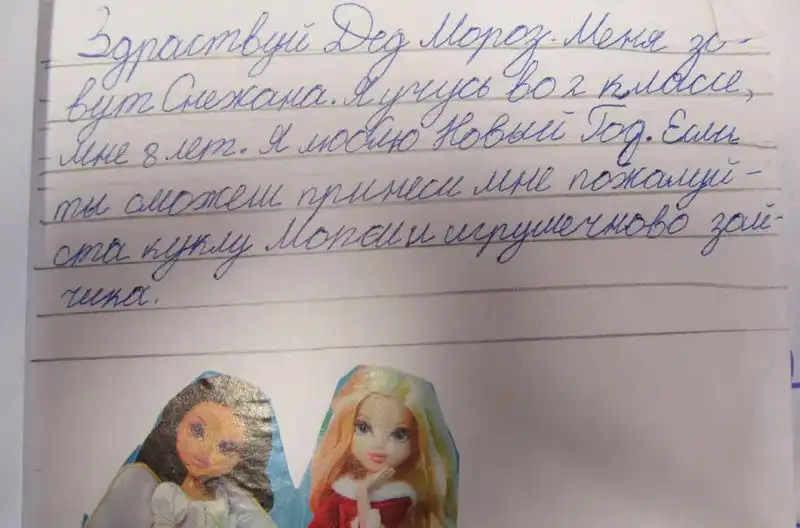 Здраствуй Дед Мороз. Меня зо-
вут Снежана. Я учусь во 2 классе,
мне 8 лет. Я люблю Новый Год. Если
ты сможеш принеси мне пожалуй-
ста куклу Мокси и игрушечново зай-
чика.